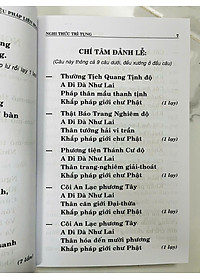 NGHI THỨC TRÌ TỤNG
CHÍ TÂM ĐẢNH LỄ:
(Câu này thông cả 9 câu dưới, đều xướng ở đầu câu)
— Thường Tịch Quang Tịnh độ
A Di Đà Như Lai
Pháp thân mầu thanh tịnh
Khắp pháp giới chư Phật (1 lạy)
— Thật Báo Trang Nghiêm độ
A Di Đà Như Lai
Thân tướng hải vi trần
Khắp pháp giới chư Phật (1 lạy)
— Phương tiện Thánh Cư độ
A Di Đà Như Lai
Thân trang-nghiêm giải-thoát
Khắp pháp giới chư Phật (1 lạy)
— Cõi An Lạc phương Tây
A Di Đà Như Lai
Thân căn giới Đại-thừa
Khắp pháp giới chư Phật (1 lạy)
— Cõi An Lạc phương Tây
A Di Đà Như Lai
Thân hóa đến mười phương
Khắp pháp giới chư Phật (1 lạy)